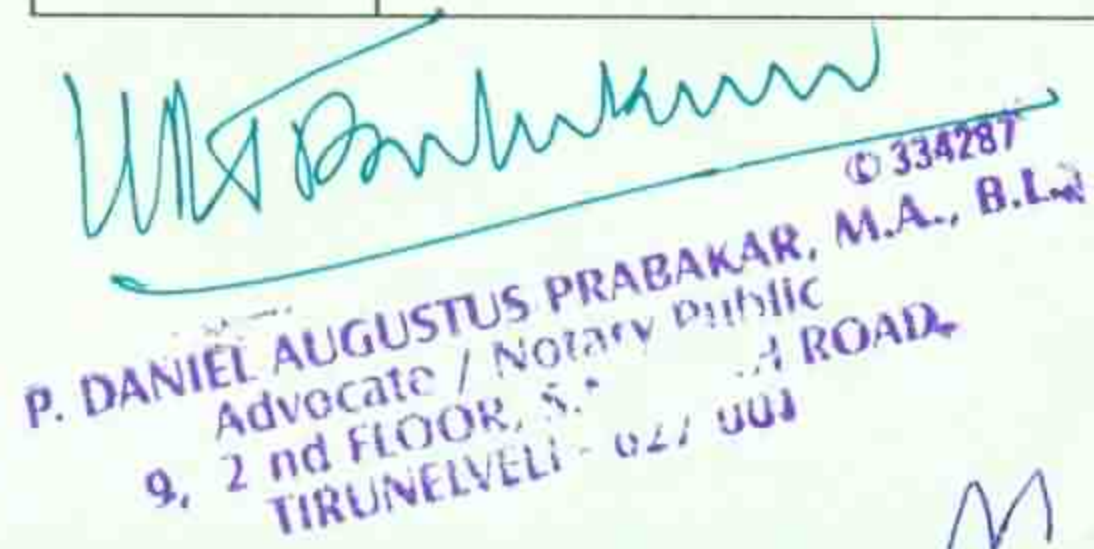 ✆ 334287
P. DANIEL AUGUSTUS PRABAKAR, M.A., B.L.,
Advocate / Notary Public
9, 2 nd FLOOR, ROAD,
TIRUNELVELI - 627 001